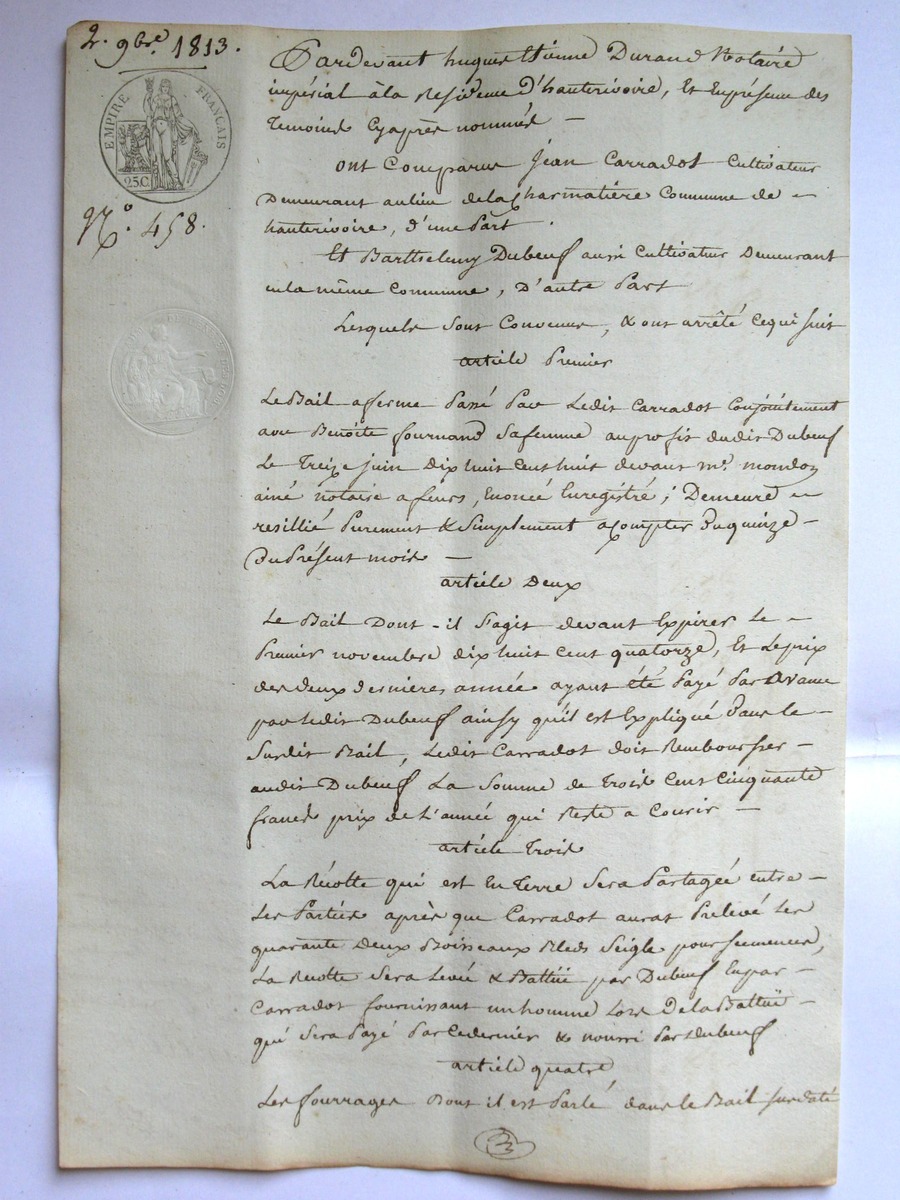 2. 9bre 1813.
EMPIRE FRANÇAIS
25 C.
N.° 458.
Pardevant hugues Etienne Durand Notaire
impérial à la Residence d'hauterivoire, Et En présence des
Temoins Cyaprès nommés —
ont Comparus Jean Carradot Cultivateur
Demeurant au lieu de la Charmatière Commune de —
hauterivoire, d'une Part.
Et Barthelemy Dubeuf aussi Cultivateur Demeurant
en la même Commune, D'autre Part
Lesquels Sont Convenus, & ont arrêté Ce qui suit
article Premier
Le Bail a ferme Passé Par Ledit Carradot Conjointement
avec Benoite fournand sa femme au profit dudit Dubeuf
Le Treize juin dix huit Cent huit devant me. mondon
ainé notaire a feurs, Enoncé Enregistré; Demeure —
resillié Purement & Simplement a Compter du quinze —
Du Présent mois —
article Deux
Le Bail Dont-il S'agit devant Expirer Le —
Premier novembre dix huit Cent quatorze, Et Le prix
des deux dernières année ayant été Payé Par avance
par Ledit Dubeuf ainsy qu'il est Expliqué dans le —
Surdit Bail, Ledit Carradot doit Rembourser —
audit Dubeuf La Somme de Trois Cent Cinquante
francs prix de L'année qui Reste a Courir —
article Trois
La Récolte qui est En Terre Sera Partagée entre —
Les Parties après que Carradot aurat Prelevé Les
quarante Deux Boisseaux Bleds Seigle pour semences,
La Récolte Sera Levée & Battüe par Dubeuf
Carradot fournissant un homme Lors De la Battüe —
qui Sera Payé Par Ce dernier & nourri Par Dubeuf
article quatre
Les fourrages Dont il est Parlé dans le Bail surdaté